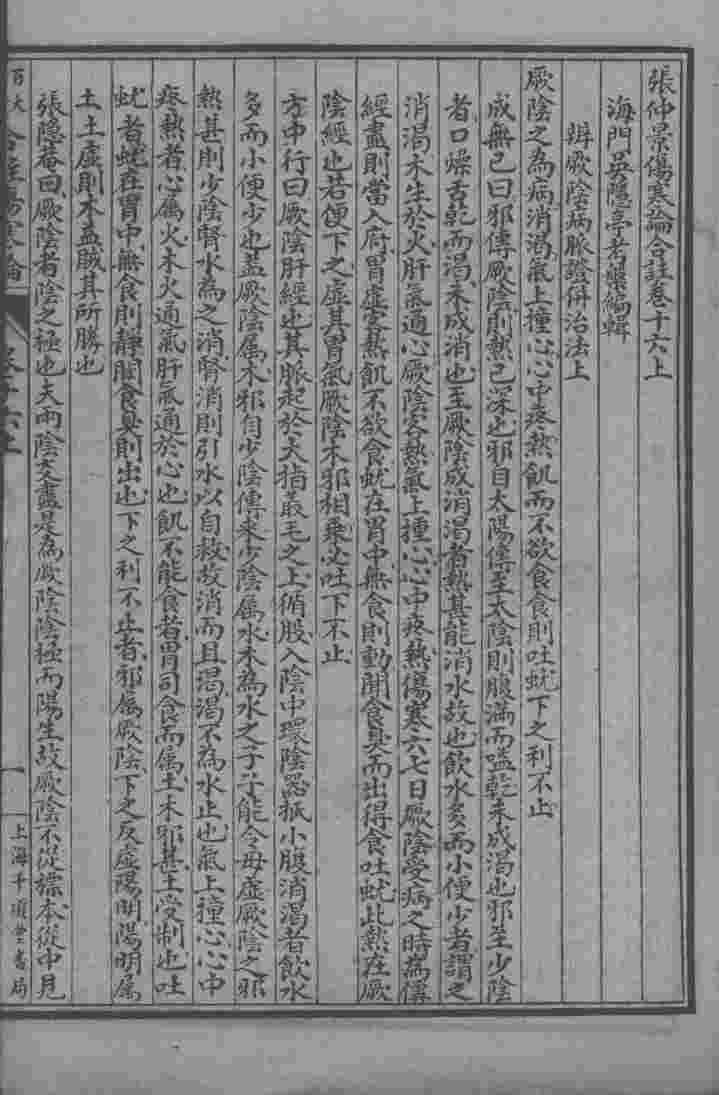 張仲景傷寒論合註卷十六上
海門吳隱亭考槃編輯
辨厥陰病脈證併治法上
厥陰之為病消渴氣上撞心心中疼熱飢而不欲食食則吐蚘下之利不止
成無己曰邪傳厥陰則熱已深也邪自太陽傳至太陰則腹滿而嗌乾未成渴也邪至少陰
者口燥舌乾而渴未成消也至厥陰成消渴者熱甚能消水故也飲水多而小便少者謂之
消渴木生於火肝氣通心厥陰客熱氣上撞心心中疼熱傷寒六七日厥陰受病之時為傳
經盡則當入府胃虛客熱飢不欲食蚘在胃中無食則動聞食臭而出得食吐蚘此熱在厥
陰經也若便下之虛其胃氣厥陰木邪相乘必吐下不止
方中行曰厥陰肝經也其脈起於大指叢毛之上循股入陰中環陰器抵小腹消渴者飲水
多而小便少也蓋厥陰屬木邪自少陰傳來少陰屬水木為水之子子能令母虛厥陰之邪
熱甚則少陰腎水為之消腎消則引水以自救故消而且渴渴不為水止也氣上撞心心中
疼熱者心屬火木火通氣肝氣通於心也飢不能食者胃司食而屬土木邪甚土受制也吐
蚘者蚘在胃中無食則靜聞食臭則出也下之利不止者邪屬厥陰下之反虛陽明陽明屬
土土虛則木益賊其所勝也
張隱菴曰厥陰者陰之極也夫兩陰交盡是為厥陰陰極而陽生故厥陰不從標本從中見
百大合註傷寒論
卷十六上
一
上海千頃堂書局